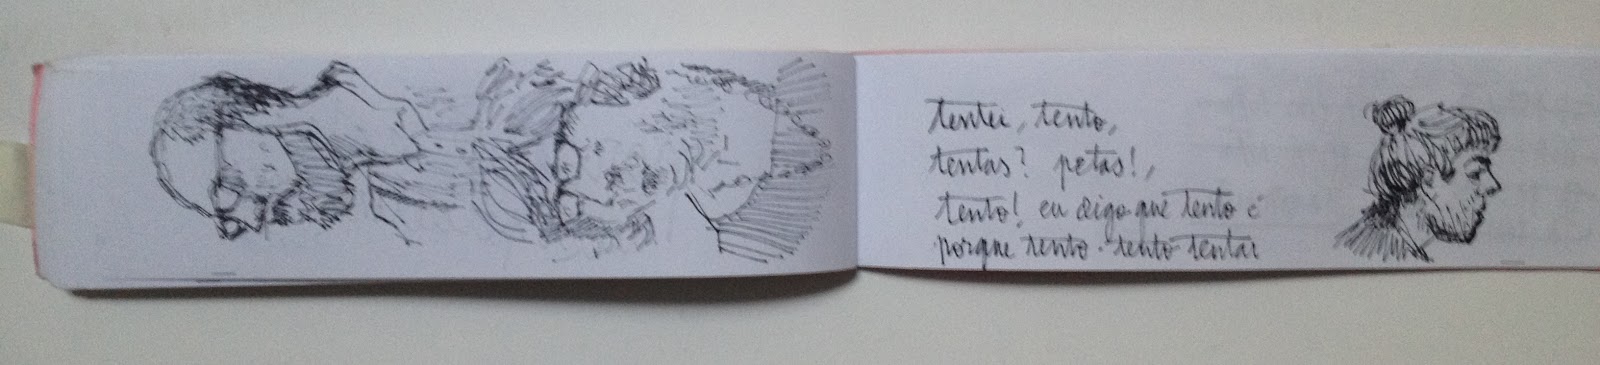 tentei, tento,
tentas? petas!,
tento! eu digo que tento é
porque tento. tento tentar